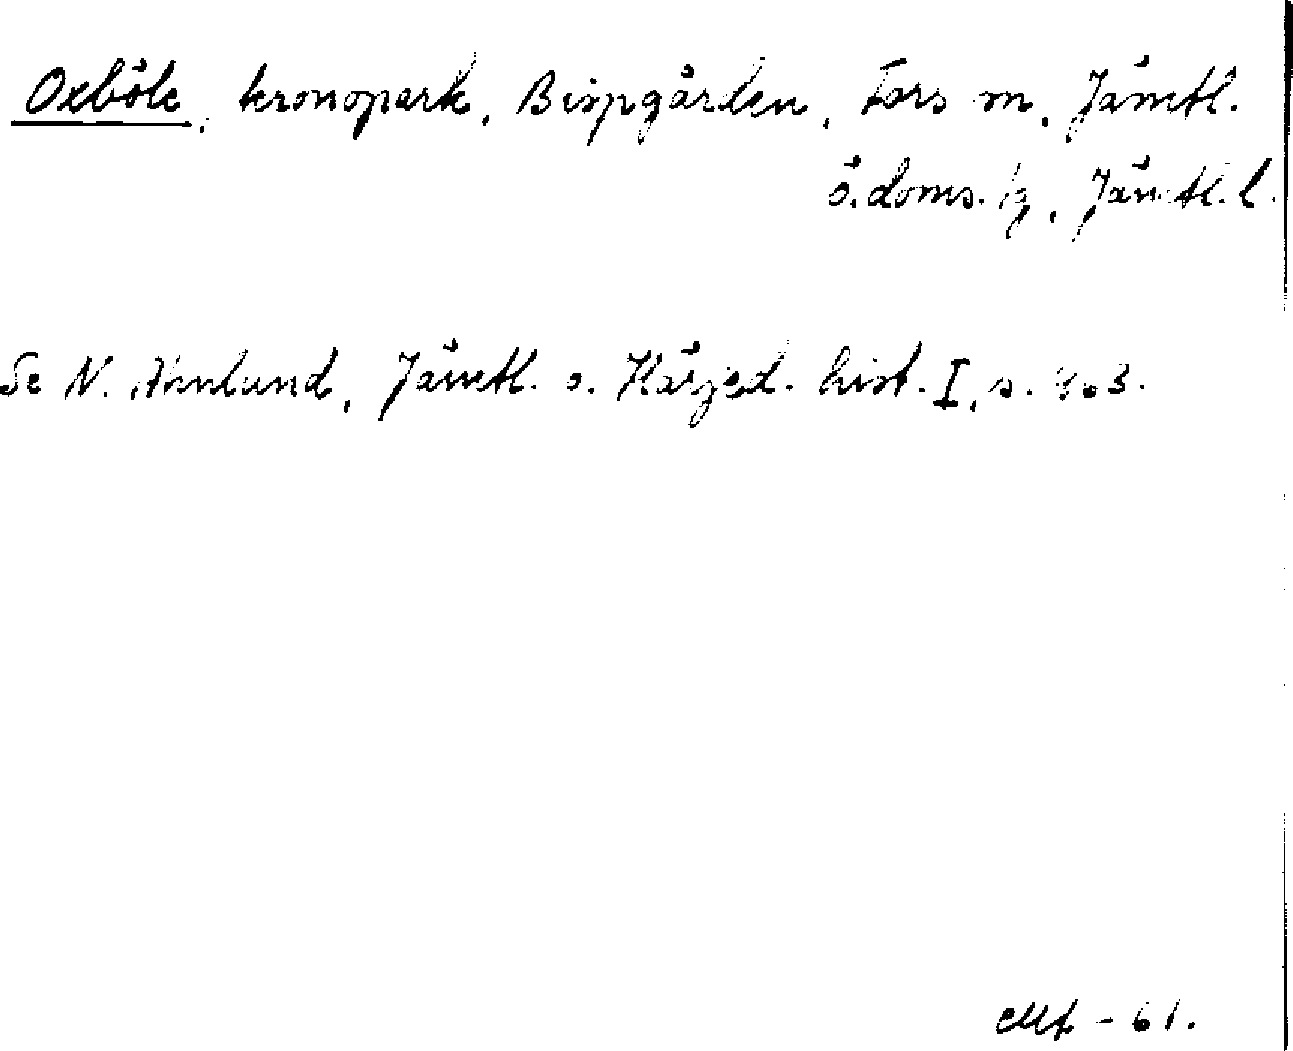 Oxböle, kronopark, Bispgården, Fors sn, Jämtl.
ö. doms. tg, Jämtl. l.
Se N. Ahnlund, Jämtl. o. Härjed. hist. I, s. 403.
- 61.